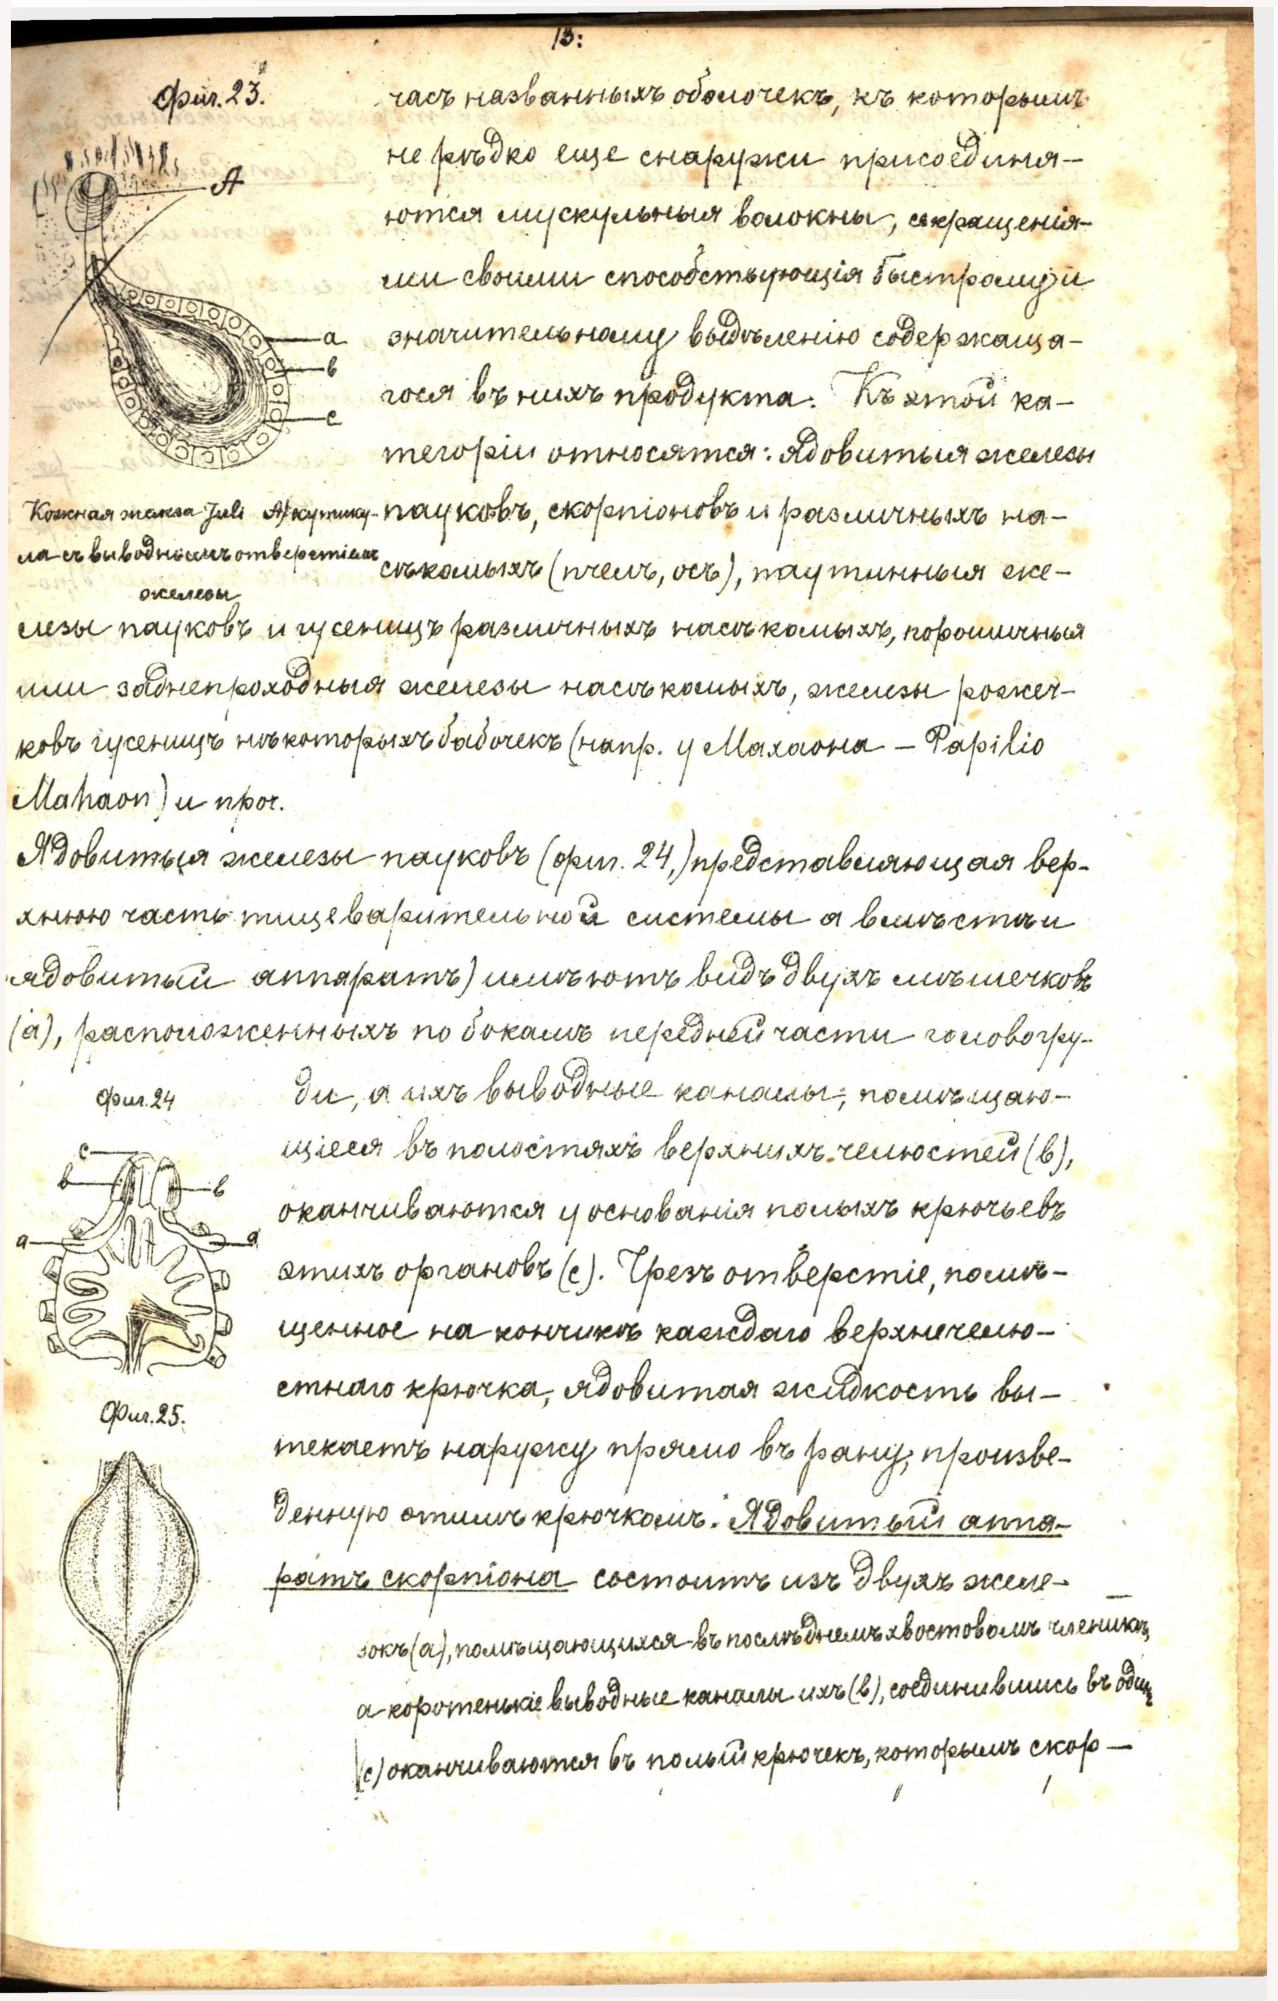 13:
Фиг. 23.
часъ названныхъ оболочекъ, къ которымъ
не рѣдко еще снаружи присоединя-
А
ются мускульныя волокны, сокращенія-
ми своими способствующія быстрому и
а
значительному выдѣленію содержаща-
в
гося въ нихъ продукта. Къ этой ка-
с
тегоріи относятся: ядовитыя железы
Кожная железа Juli А) кутику-
ла съ выводнымъ отверстіемъ
железы
пауковъ, скорпіоновъ и различныхъ на-
сѣкомыхъ (пчелъ, осъ), паутинныя же-
лезы пауковъ и гусеницъ различныхъ насѣкомыхъ, порошичныя
или заднепроходныя железы насѣкомыхъ, железы рожеч-
ковъ гусеницъ нѣкоторыхъ бабочекъ (напр. у Махаона – Papilio
Mahaon) и проч.
Ядовитыя железы пауковъ (фиг. 24,) представляющая вер-
хнюю часть пищеварительной системы а вмѣстѣ и
ядовитый аппаратъ) имѣютъ видъ двухъ мѣшечковъ
(а), расположенныхъ по бокамъ передней части головогру-
Фиг. 24
ди, а ихъ выводные каналы, помѣщаю-
щіеся въ полостяхъ верхнихъ челюстей (в),
с
в
в
оканчиваются у основанія полыхъ крючьевъ
а
а
этихъ органовъ (с). Чрезъ отверстіе, помѣ-
щенное на кончикѣ каждаго верхнечелю-
стнаго крючка, ядовитая жидкость вы-
Фиг. 25.
текаетъ наружу прямо въ рану, произве-
денную этимъ крючкомъ. Ядовитый аппа-
ратъ скорпіона состоитъ изъ двухъ желе-
зокъ (а), помѣщающихся въ послѣднемъ хвостовомъ членикѣ,
а коротенькіе выводные каналы ихъ (в), соединившись въ одинъ
(с) оканчиваются въ полый крючекъ, которымъ скор-